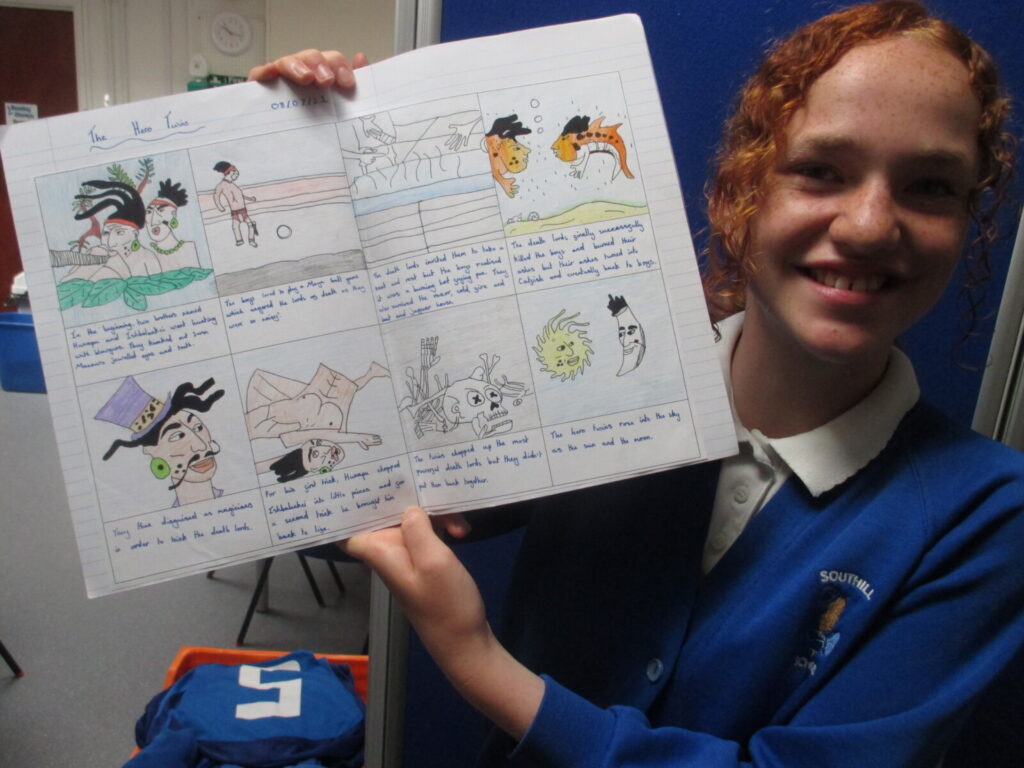 The Hero Twins
05/07/22
In the beginning, two brothers named
Hunapu and Ishbalankei went hunting
with blowguns. They knocked out Seven
Macaw's jewelled eyes and teeth.
The boys loved to play a Maya ball game
which angered the lords of death as they
were so noisy!
The death lords invited them to take a
seat and rest but the boys realised
it was a burning hot frying pan. They
also survived the razor, cold, fire and
bat and jaguar house.
The death lords finally successfully
killed the boys and burned their
ashes but their ashes turned into
Catfish and eventually back to boys.
They then disguised as magicians
in order to trick the death lords.
For his first trick, Hunapu chopped
Ishbalankei into little pieces and for
a second trick he brought him
back to life.
The twins chopped up the most
powerful death lords but they didn't
put them back together.
The hero twins rose into the sky
as the sun and the moon.
SOUTHILL
5